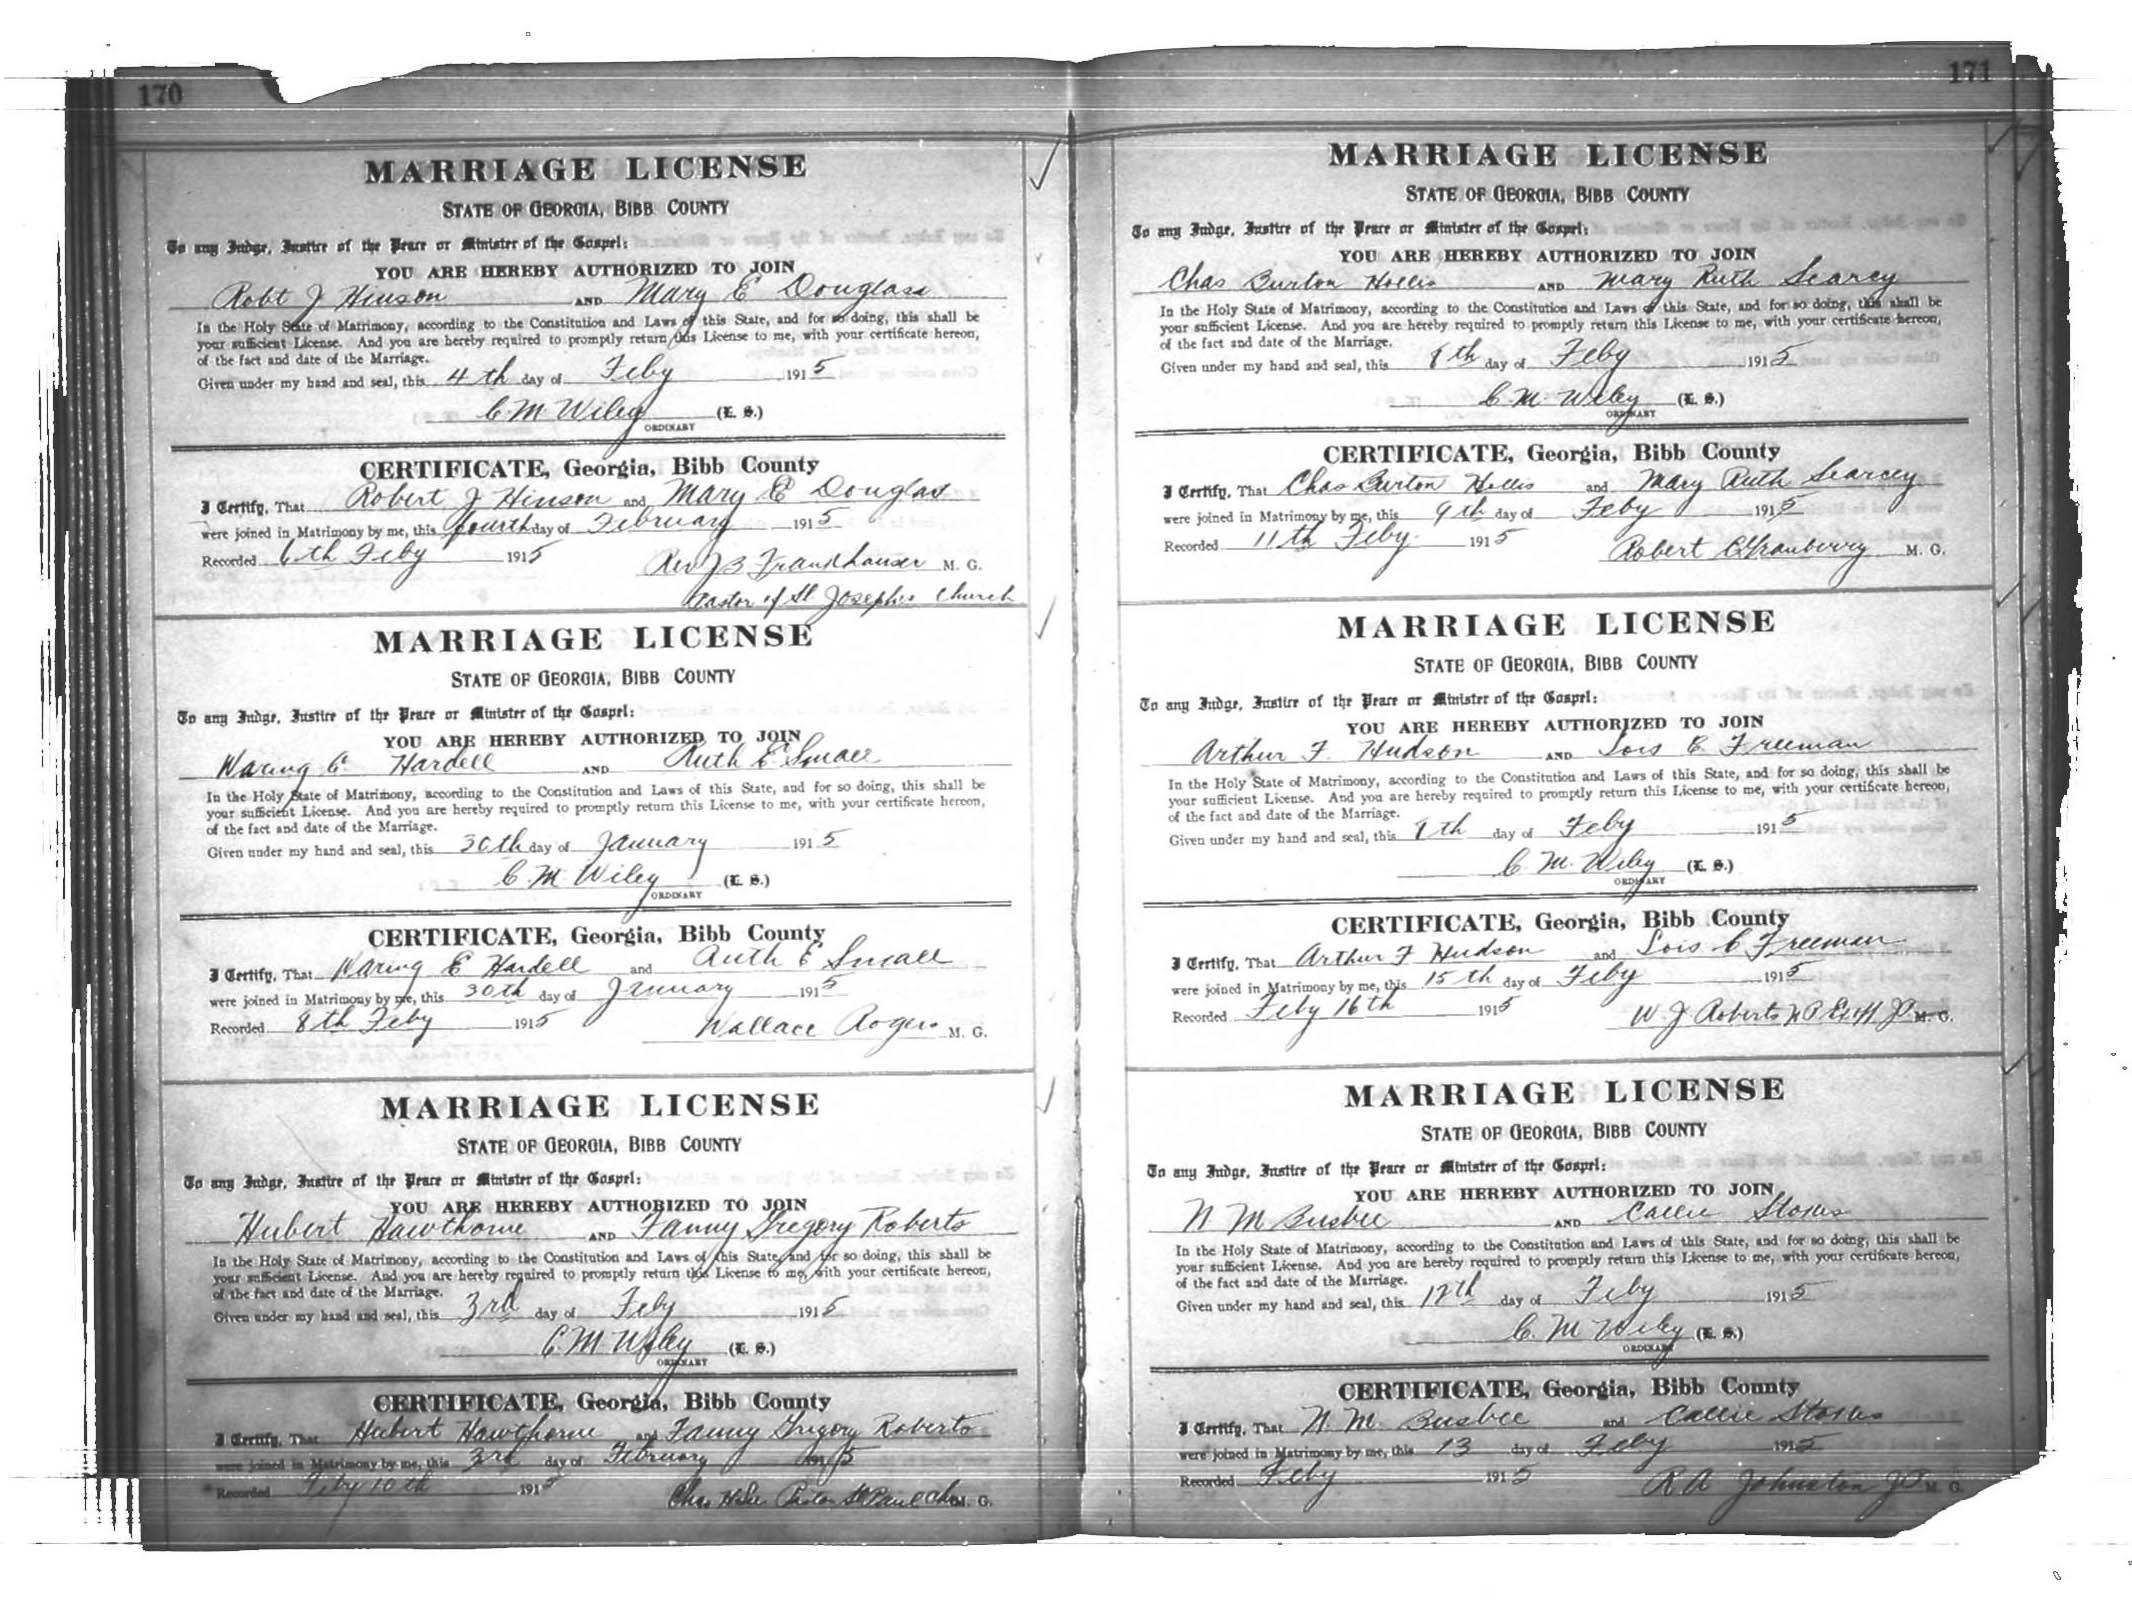 170
MARRIAGE LICENSE
STATE OF GEORGIA, BIBB COUNTY
To any Judge, Justice of the Peace or Minister of the Gospel:
YOU ARE HEREBY AUTHORIZED TO JOIN
Robt J Hinson AND Mary E Douglass
In the Holy State of Matrimony, according to the Constitution and Laws of this State, and for so doing, this shall be
your sufficient License. And you are hereby required to promptly return this License to me, with your certificate hereon,
of the fact and date of the Marriage.
Given under my hand and seal, this 4th day of Feby 1915
C. M. Wiley (L. S.)
ORDINARY
CERTIFICATE, Georgia, Bibb County
I Certify, That Robert J Hinson and Mary E Douglas
were joined in Matrimony by me, this fourth day of February 1915
Recorded 6th Feby 1915 Rev J B Frankhauser M. G.
Pastor of St Josephs Church
MARRIAGE LICENSE
STATE OF GEORGIA, BIBB COUNTY
To any Judge, Justice of the Peace or Minister of the Gospel:
YOU ARE HEREBY AUTHORIZED TO JOIN
Waring E. Hardell AND Ruth E Small
In the Holy State of Matrimony, according to the Constitution and Laws of this State, and for so doing, this shall be
your sufficient License. And you are hereby required to promptly return this License to me, with your certificate hereon,
of the fact and date of the Marriage.
Given under my hand and seal, this 30th day of January 1915
C. M Wiley (L. S.)
ORDINARY
CERTIFICATE, Georgia, Bibb County
I Certify, That Waring E Hardell and Ruth E Small
were joined in Matrimony by me, this 30th day of January 1915
Recorded 8th Feby 1915 Wallace Rogers M. G.
MARRIAGE LICENSE
STATE OF GEORGIA, BIBB COUNTY
To any Judge, Justice of the Peace or Minister of the Gospel:
YOU ARE HEREBY AUTHORIZED TO JOIN
Hubert Hawthorne AND Fanny Gregory Roberts
In the Holy State of Matrimony, according to the Constitution and Laws of this State, and for so doing, this shall be
your sufficient License. And you are hereby required to promptly return this License to me, with your certificate hereon,
of the fact and date of the Marriage.
Given under my hand and seal, this 3rd day of Feby 1915
C. M Wiley (L. S.)
ORDINARY
CERTIFICATE, Georgia, Bibb County
I Certify, That Hubert Hawthorne and Fanny Gregory Roberts
were joined in Matrimony by me, this 3rd day of February 1915
Recorded Feby 10th 1915 Chas H Lee Pastor St Paul Ch M. G.
171
MARRIAGE LICENSE
STATE OF GEORGIA, BIBB COUNTY
To any Judge, Justice of the Peace or Minister of the Gospel:
YOU ARE HEREBY AUTHORIZED TO JOIN
Chas Burton Hollis AND Mary Ruth Searcy
In the Holy State of Matrimony, according to the Constitution and Laws of this State, and for so doing, this shall be
your sufficient License. And you are hereby required to promptly return this License to me, with your certificate hereon,
of the fact and date of the Marriage.
Given under my hand and seal, this 8th day of Feby 1915
C. M. Wiley (L. S.)
ORDINARY
CERTIFICATE, Georgia, Bibb County
I Certify, That Chas Burton Hollis and Mary Ruth Searcey
were joined in Matrimony by me, this 9th day of Feby 1915
Recorded 11th Feby. 1915 Robert C Granberry M. G.
MARRIAGE LICENSE
STATE OF GEORGIA, BIBB COUNTY
To any Judge, Justice of the Peace or Minister of the Gospel:
YOU ARE HEREBY AUTHORIZED TO JOIN
Arthur F. Hudson AND Lois C. Freeman
In the Holy State of Matrimony, according to the Constitution and Laws of this State, and for so doing, this shall be
your sufficient License. And you are hereby required to promptly return this License to me, with your certificate hereon,
of the fact and date of the Marriage.
Given under my hand and seal, this 8th day of Feby 1915
C. M. Wiley (L. S.)
ORDINARY
CERTIFICATE, Georgia, Bibb County
I Certify, That Arthur F Hudson and Lois C Freeman
were joined in Matrimony by me, this 15th day of Feby 1915
Recorded Feby 16th 1915 W. J Roberts N P Ex off J P M. G.
MARRIAGE LICENSE
STATE OF GEORGIA, BIBB COUNTY
To any Judge, Justice of the Peace or Minister of the Gospel:
YOU ARE HEREBY AUTHORIZED TO JOIN
N M Busbee AND Callie Stokes
In the Holy State of Matrimony, according to the Constitution and Laws of this State, and for so doing, this shall be
your sufficient License. And you are hereby required to promptly return this License to me, with your certificate hereon,
of the fact and date of the Marriage.
Given under my hand and seal, this 12th day of Feby 1915
C. M Wiley (L. S.)
ORDINARY
CERTIFICATE, Georgia, Bibb County
I Certify, That N. M. Busbee and Callie Stokes
were joined in Matrimony by me, this 13 day of Feby 1915
Recorded Feby 1915 R A Johnston J P M. G.